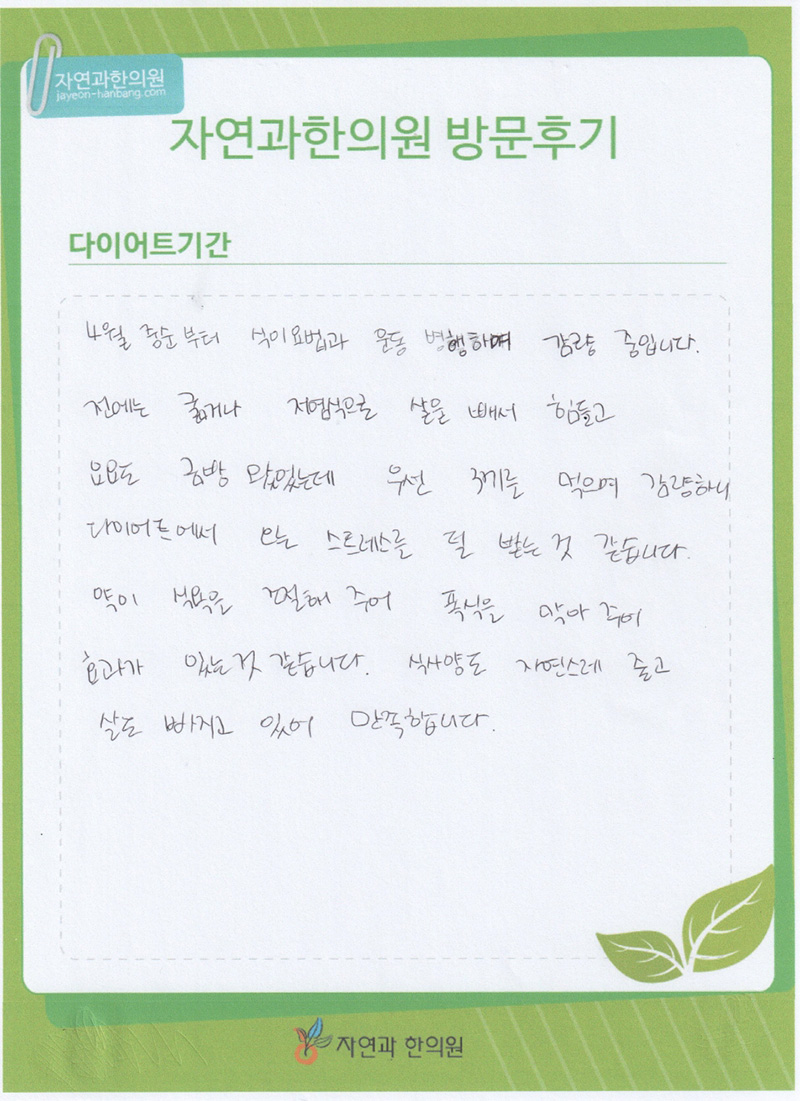 자연과한의원
jayeon-hanbang.com
자연과한의원 방문후기
다이어트기간
4월 중순부터 식이요법과 운동 병행하며 감량 중입니다.
전에는 굶거나 저염식으로 살을 빼서 힘들고
요요도 금방 왔었는데 우선 3끼를 먹으며 감량하니
다이어트에서 오는 스트레스를 덜 받는것 같습니다.
약이 식욕을 조절해 주어 폭식을 막아 주어
효과가 있는것 같습니다. 식사양도 자연스레 줄고
살도 빠지고 있어 만족합니다.
자연과 한의원